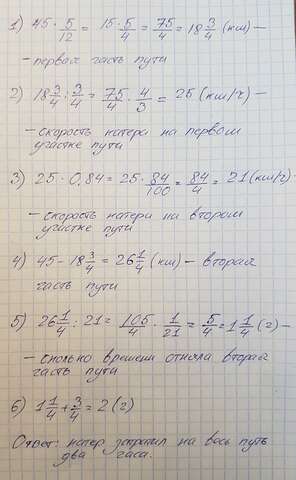 1) 45 · 5/12 = 15 · 5/4 = 75/4 = 18 3/4 (км) —
- первая часть пути
2) 18 3/4 : 3/4 = 75/4 · 4/3 = 25 (км/ч) —
- скорость катера на первом
участке пути
3) 25 · 0,84 = 25 · 84/100 = 84/4 = 21 (км/ч) -
- скорость катера на втором
участке пути
4) 45 - 18 3/4 = 26 1/4 (км) - вторая
часть пути
5) 26 1/4 : 21 = 105/4 · 1/21 = 5/4 = 1 1/4 (ч) —
- сколько времени отняла вторая
часть пути
6) 1 1/4 + 3/4 = 2 (ч)
Ответ: катер затратил на весь путь
два часа.